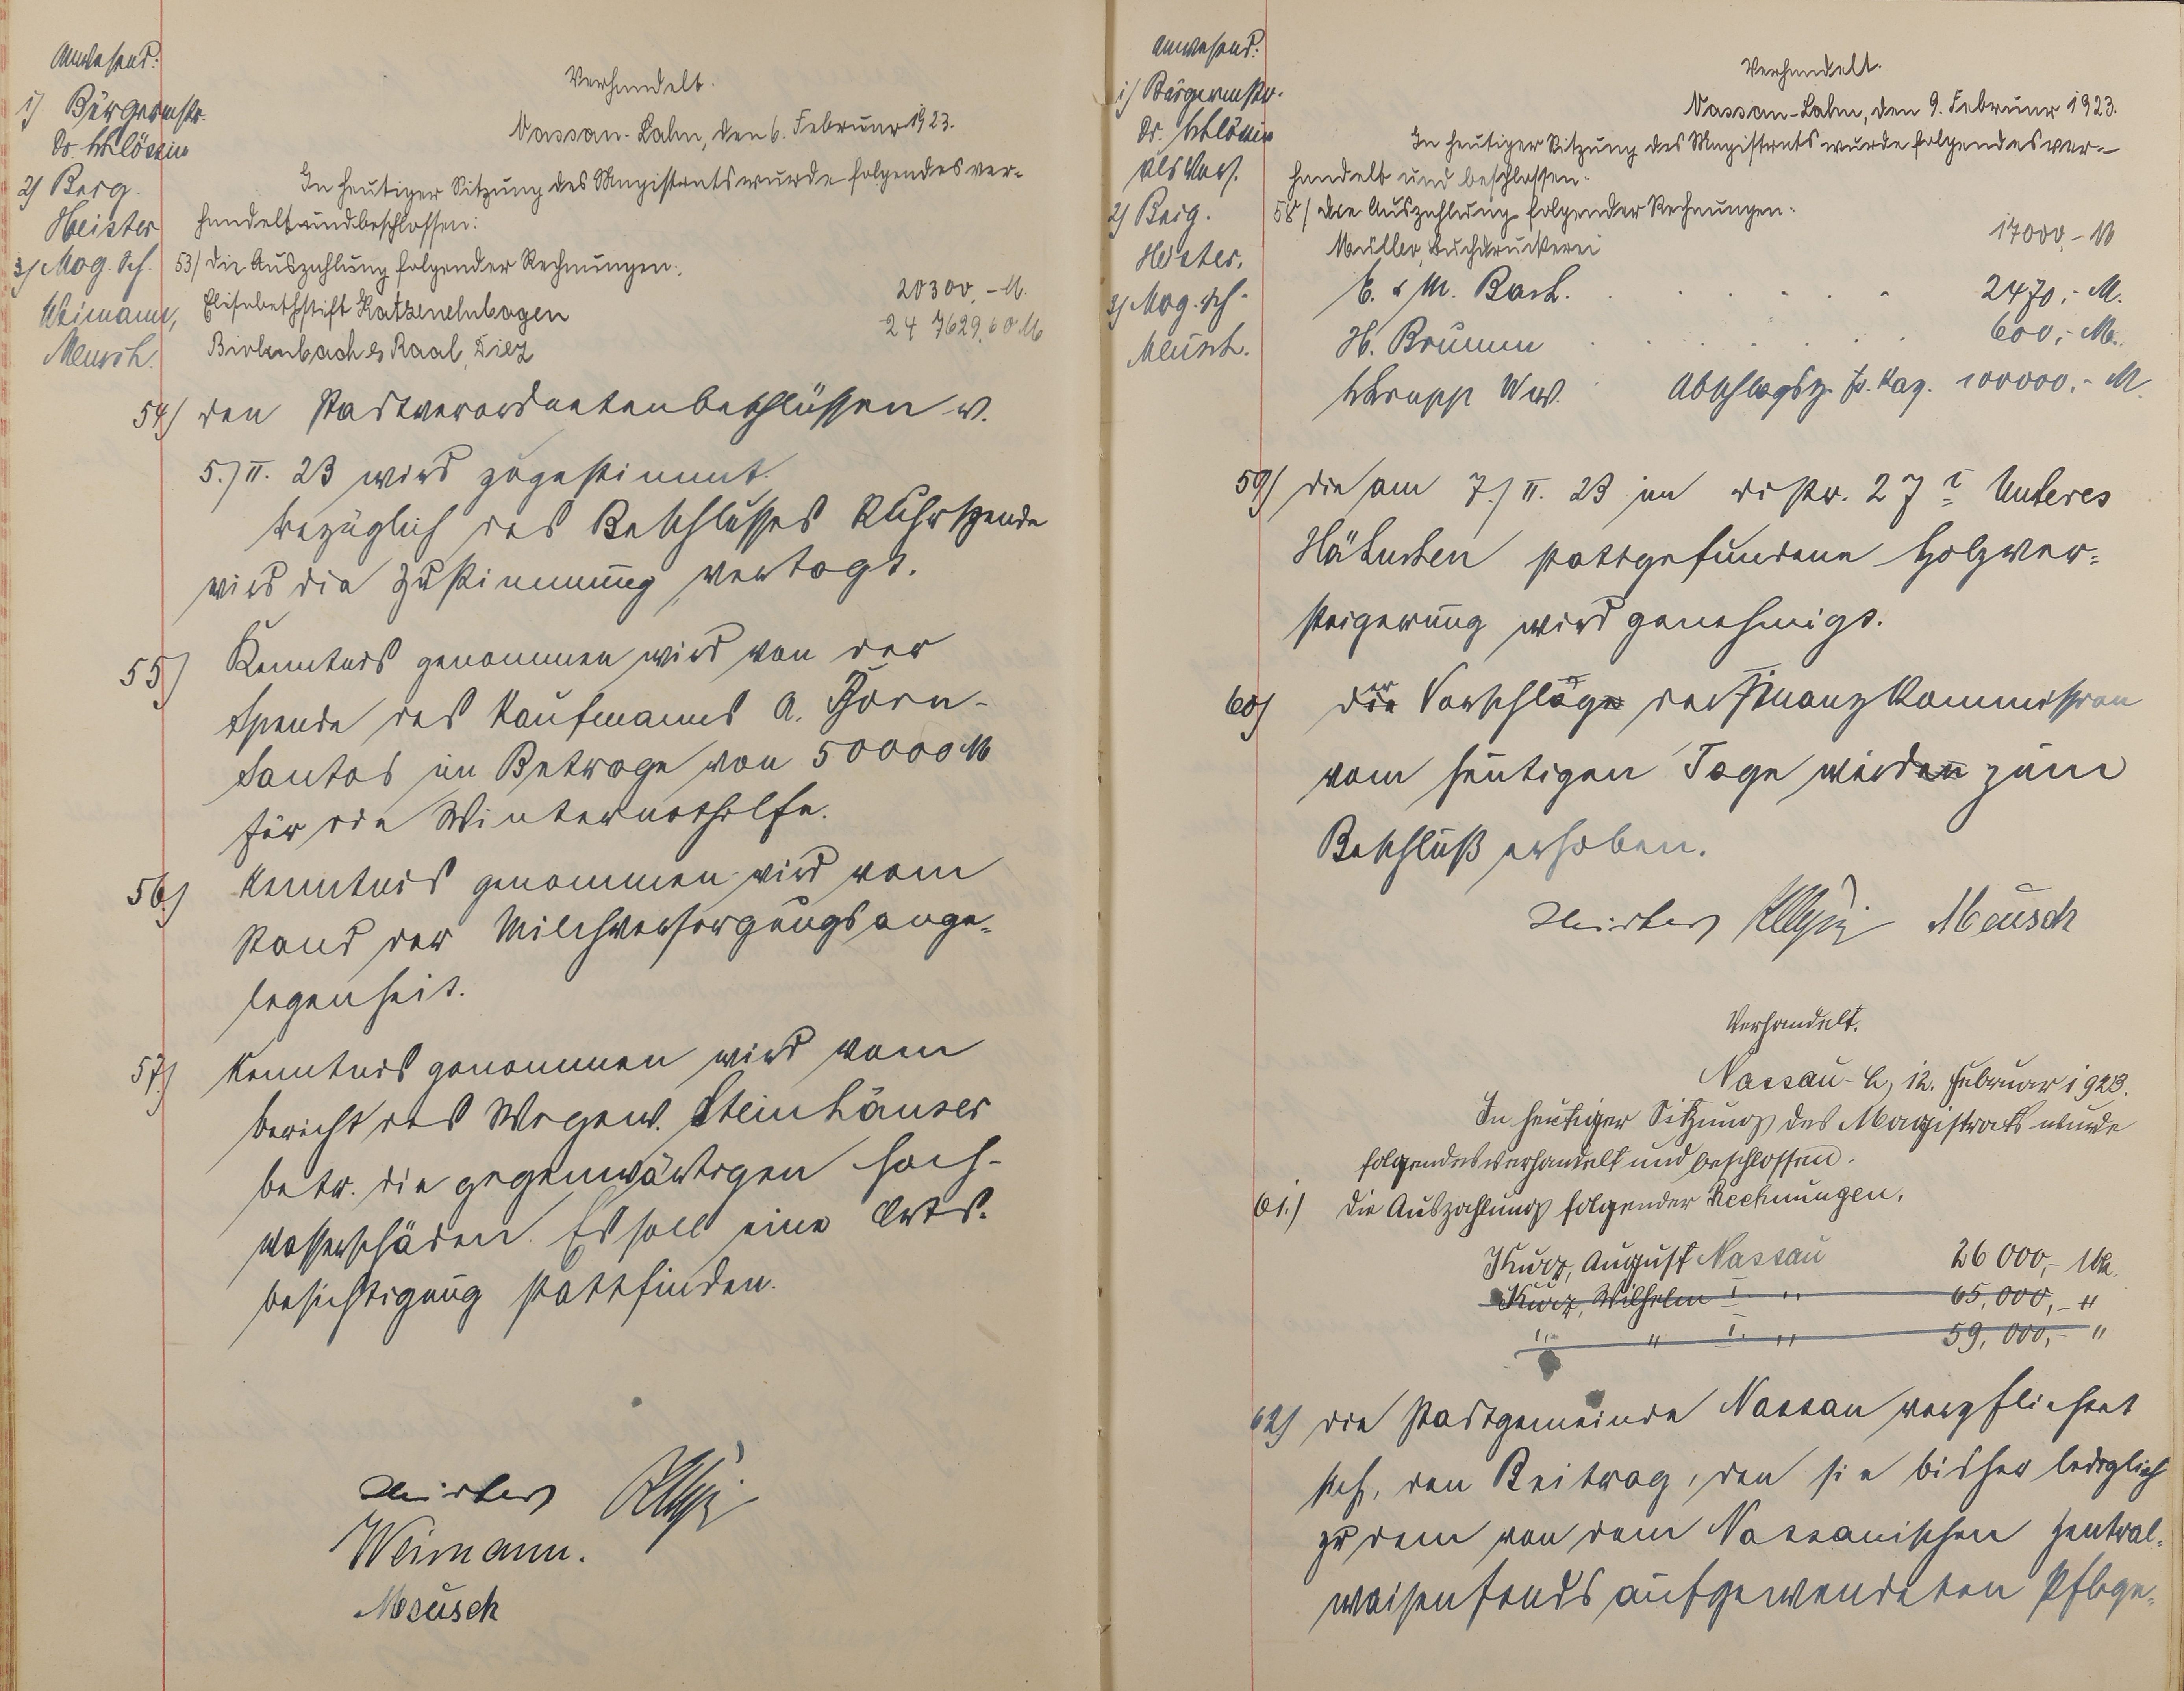 Anwesend:
1) Bürgermstr.
Dr. Schlössin
2) Beig.
Heister
3) Mag. Sch.
Weimann,
Meusch.
Verhandelt.
Nassau-Lahn, den 6. Februar 1923.
In heutiger Sitzung des Magistrats wurde folgendes ver-
handelt und beschlossen:
53) Die Auszahlung folgender Rechnungen:
Elisabethstift Katzenelnbogen 20300,- M.
Birlenbach & Raab, Diez 247629,60 M
54) den Stadtverordnetenbeschlüssen v.
5./II. 23 wird zugestimmt.
bezüglich des Beschlusses Ruhrspende
wird die Zustimmung vertagt.
55) Kenntnis genommen wird von der
Spende des Kaufmanns A. Born-
Santos im Betrage von 50000 M
für die Winternothilfe.
56) Kenntnis genommen wird vom
Stand der Milchversorgungsange-
legenheit.
57) Kenntnis genommen wird vom
bericht des Wegew. Steinhäuser
betr. die gegenwärtigen Hoch-
wasserschäden. Es soll eine Orts-
besichtigung stattfinden.
Heister
Weimann.
Meusch
Anwesend:
1) Bürgermstr.
Dr. Schlössin
als Vors.
2) Beig.
Heister.
3) Mag. Sch.
Meusch.
Verhandelt.
Nassau-Lahn, den 9. Februar 1923.
In heutiger Sitzung des Magistrats wurde folgendes ver-
handelt und beschlossen:
58) die Auszahlung folgender Rechnungen:
Müller, Buchdruckerei 17000,- M
E. & M. Bach. 2470,- M.
H. Brumm 600,- M.
Schrupp Ww. Abschlagsz. 100000,- M.
59) die am 7./II. 23 im Distr. 27 I Unteres
Hähnchen stattgefundene Holzver-
steigerung wird genehmigt.
60) der Vorschlag der Finanzkommission
vom heutigen Tage wird zum
Beschluß erhoben.
Heister Meusch
Verhandelt.
Nassau-L, 12. Februar 1923.
In heutiger Sitzung des Magistrats wurde
folgendes verhandelt und beschlossen.
61.) Die Auszahlung folgender Rechnungen.
Kurz, August Nassau 26 000,- Mk.
Kurz, Wilhelm I " 65,000,- "
" " I. " 59,000,- "
62) die Stadtgemeinde Nassau verpflichtet
sich, den Beitrag, den sie bisher lediglich
zu dem von dem Nassauischen Zentral-
waisenfonds aufgewendeten Pflege-